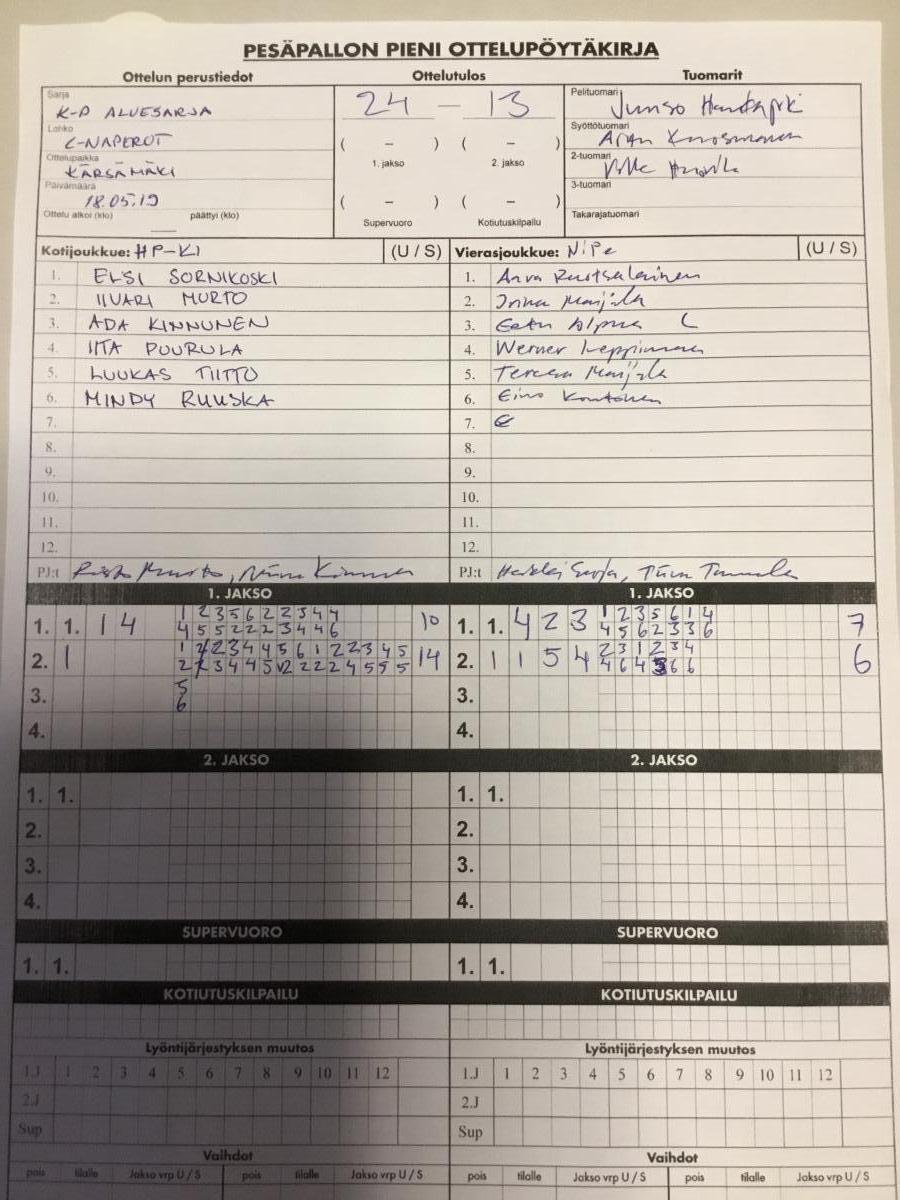 PESÄPALLON PIENI OTTELUPÖYTÄKIRJA
Ottelun perustiedot Ottelutulos Tuomarit
Sarja
K-P ALUESARJA
Lohko
C-NAPEROT
Ottelupaikka
KÄRSÄMÄKI
Päivämäärä
18.05.19
Ottelu alkoi (klo) päättyi (klo)
24 — 13
( – ) ( – )
1. jakso 2. jakso
( – ) ( – )
Supervuoro Kotiutuskilpailu
Pelituomari
Syöttötuomari
2-tuomari
3-tuomari
Takarajatuomari
Kotijoukkue: HP-K1 (U / S)
1. ELSI SORNIKOSKI
2. IIVARI MURTO
3. ADA KINNUNEN
4. IITA PUURULA
5. LUUKAS TIITTO
6. MINDY RUUSKA
7.
8.
9.
10.
11.
12.
PJ:t
Vierasjoukkue: NiPe (U / S)
1.
2.
3. Eetu
4. Werner Leppinen
5.
6. Eino
7.
8.
9.
10.
11.
12.
PJ:t
1. JAKSO
1. 1. 1 4 1 2 3 5 6 2 2 3 4 4 10
4 5 5 2 2 2 3 4 4 6
2. 1 14
3. 5
6
4.
1. JAKSO
1. 1. 4 2 3 1 2 3 5 6 1 4 7
4 5 6 2 3 3 6
2. 1 1 5 4 2 3 1 2 3 4 6
4 6 4 3 6 6
3.
4.
2. JAKSO
1. 1.
2.
3.
4.
2. JAKSO
1. 1.
2.
3.
4.
SUPERVUORO
1. 1.
SUPERVUORO
1. 1.
KOTIUTUSKILPAILU
KOTIUTUSKILPAILU
Lyöntijärjestyksen muutos
1.J 1 2 3 4 5 6 7 8 9 10 11 12
2.J
Sup
Lyöntijärjestyksen muutos
1.J 1 2 3 4 5 6 7 8 9 10 11 12
2.J
Sup
Vaihdot
pois tilalle Jakso vrp U / S pois tilalle Jakso vrp U / S
Vaihdot
pois tilalle Jakso vrp U / S pois tilalle Jakso vrp U / S